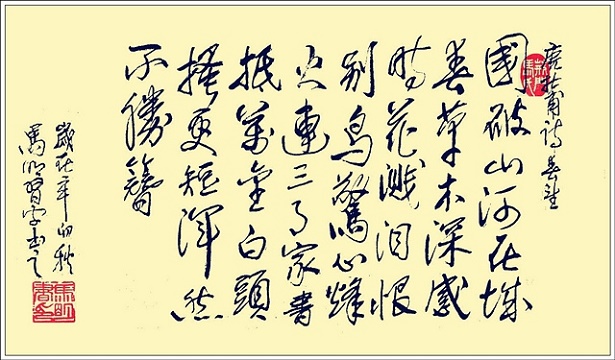 唐杜甫詩春望
國破山河在城
春草木深感
時花濺泪恨
別鳥驚心烽
火連三月家書
抵萬金白頭
搔更短渾然
不勝簪
歲在辛卯秋
馬明習字書之